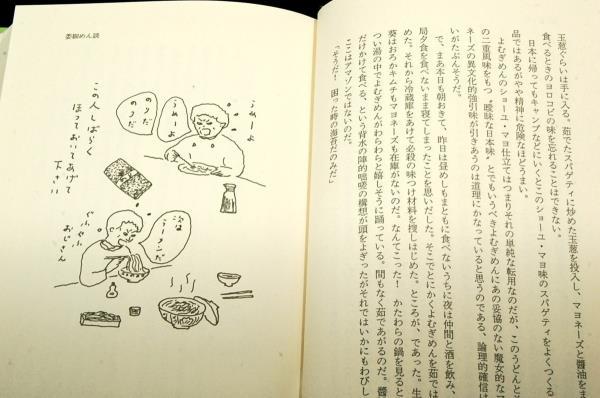 玉葱ぐらいは手に入る。茹でたスパゲティに炒めた玉葱を投入し、マヨネーズと醬油をま
食べるときのヨロコビの味を忘れることはできない。
日本に帰ってもキャンプなどにいくとこのショーユ・マヨ味のスパゲティをよくつくる
品ではあるがやや精神に危険なほどうまい。
よむぎめんのショーユ・マヨ仕立てはつまりそれの単純な転用なのだが、このうどんと
の二重風味をもつ〝曖昧な日本味〟とでもいうべきよむぎめんにあの妥協のない魔女的なマ
ネーズの異文化的強引味が引きあうのは道理にかなっていると思うのである、論理的確信は
いがたぶんそうだ。
で、まあ本日も朝おきて、昨日は昼めしもまともに食べないうちに夜は仲間と酒を飲み、
局夕食を食べないまま寝てしまったことを思いだした。そこでとにかくよむぎめんを茹では
めた。それから冷蔵庫をあけて必殺の味つけ材料を捜しはじめた。ところが、であった。生
葵はおろかキムチもマヨネーズも在庫がないのだ。なんてこった！　かたわらの鍋を見ると
つい湯の中でよむぎめんがわらわらと嬉しそうに踊っている。間もなく茹であがるのだ。醬
だけかけて食べる、という背水の陣的咄嗟の構想が頭をよぎったがそれではいかにもわびし
ここはアマゾンではないのだ。
「そうだ！　困った時の海苔だのみだ」
めん談
うめーよ
うめーよ
のりだ
のりだ
この人しばらく
ほっておいてあげて
下さい
次は
ラーメンだ
おじさん